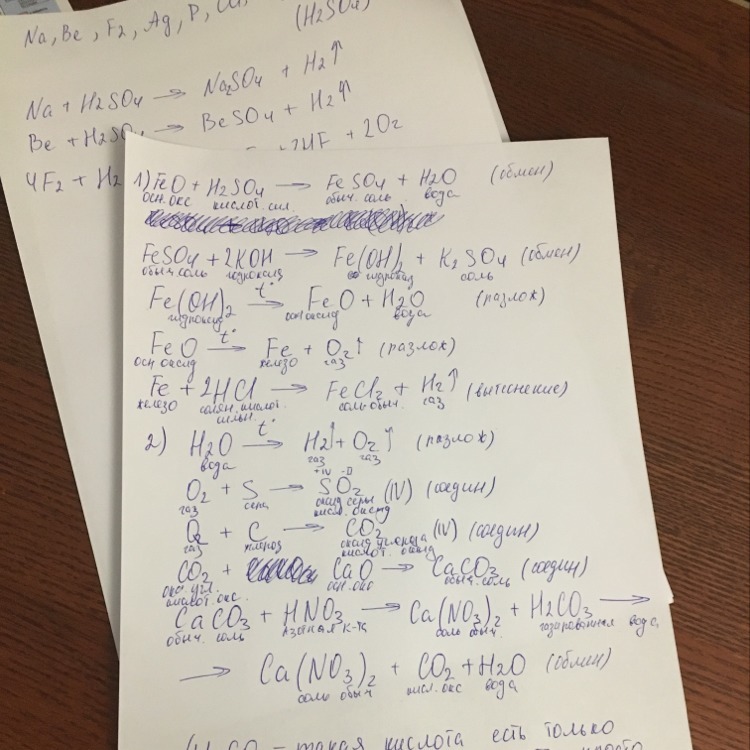 Na, Be, F2, Ag, P, Cu,
(H2SO4)
Na + H2SO4 → Na2SO4 + H2↑
Be + H2SO4 → BeSO4 + H2↑
4F2 + H2
+ 2O2
1) FeO + H2SO4 → FeSO4 + H2O (обмен)
осн. окс кислот. сил. обыч. соль вода
FeSO4 + 2KOH → Fe(OH)2 + K2SO4 (обмен)
обыч. соль гидроксид гидроксид соль
Fe(OH)2 t° → FeO + H2O (разлож)
гидроксид осн оксид вода
FeO t° → Fe + O2↑ (разлож)
осн оксид железо газ
Fe + 2HCl → FeCl2 + H2↑ (вытиснение)
железо солян. кислот. сильн. соль обыч. газ
2) H2O t° → H2↑ + O2↑ (разлож)
вода газ газ
+IV -II
O2 + S → SO2 (IV) (соедин)
газ сера оксид серы
кисл. оксид
O2 + C → CO2 (IV) (соедин)
газ углерод оксид углерода
кислот. оксид
CO2 + CaO → CaCO3 (соедин)
окс. угл. осн. окс обыч. соль
кислот. окс.
CaCO3 + HNO3 → Ca(NO3)2 + H2CO3 →
обыч. соль азотная к-та соль обыч. газированная вода
→ Ca(NO3)2 + CO2 + H2O (обмен)
соль обыч кисл. окс вода
такая кислота есть только